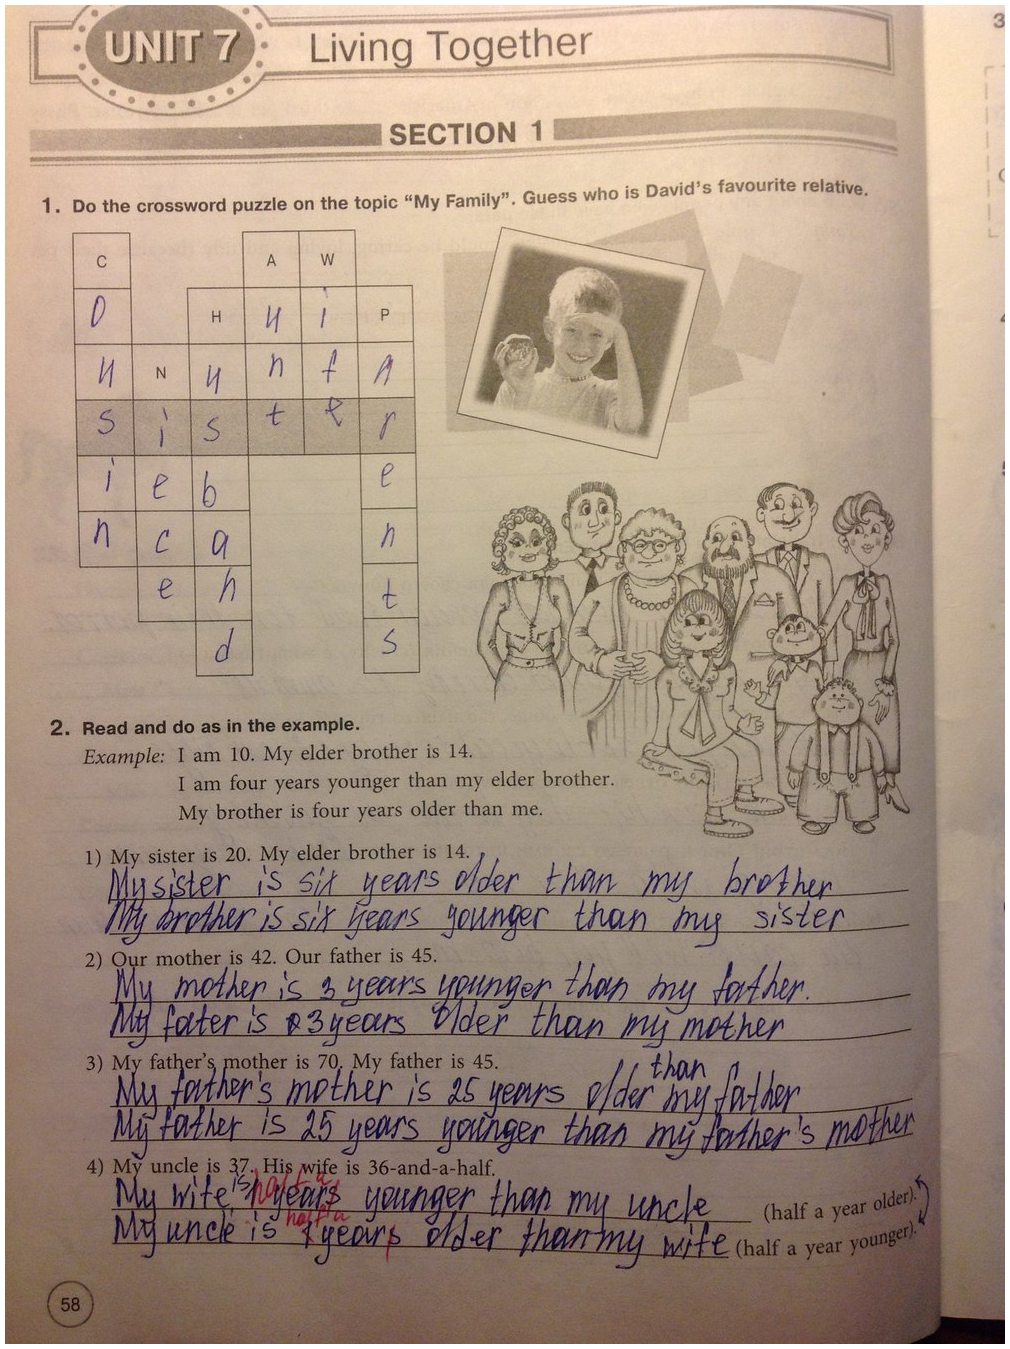 UNIT 7
Living Together
SECTION 1
1. Do the crossword puzzle on the topic “My Family”. Guess who is David’s favourite relative.
C A W
o H u i P
u N u n f a
s i s t e r
i e b e
n c a n
e n t
d s
2. Read and do as in the example.
Example: I am 10. My elder brother is 14.
I am four years younger than my elder brother.
My brother is four years older than me.
1) My sister is 20. My elder brother is 14.
My sister is six years older than my brother
My brother is six years younger than my sister
2) Our mother is 42. Our father is 45.
My mother is 3 years younger than my father.
My fater is 3 years older than my mother
3) My father’s mother is 70. My father is 45.
than
My father's mother is 25 years older my father
My father is 25 years younger than my father's mother
4) My uncle is 37. His wife is 36-and-a-half.
is half a
My wife years younger than my uncle (half a year older).
half a
My uncle is 1 years older than my wife (half a year younger).
58
3